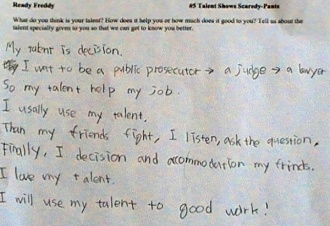 Ready Freddy #5 Talent Shows Scaredy-Pants
What do you think is your talent? How does it help you or how much does it good to you? Tell us about the
talent specially given to you so that we can get to know you better.
My talent is decision.
I wat to be a public prosecutor → a judge → a lawyer
So my talent help my job.
I usally use my talent.
Than my friends fight, I listen, ask the question.
Finally, I decision and accommodation my frinds.
I love my talent.
I will use my talent to good work!